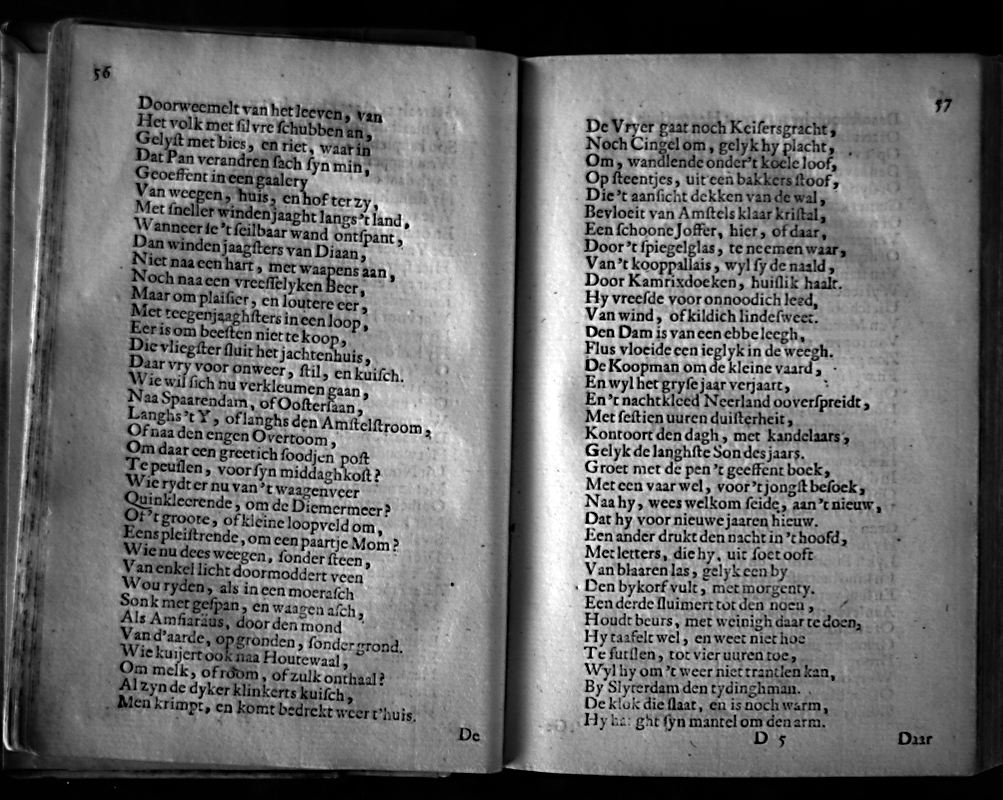 56
Doorweemelt van het leeven, van
Het volk met silvre schubben an,
Gelyst met bies, en riet, waar in
Dat Pan verandren sach syn min,
Geoeffent in een gaalery
Van weegen, huis, en hof ter zy,
Met sneller winden jaaght langs 't land,
Wanneer se 't seilbaar wand ontspant,
Dan winden jaagsters van Diaan,
Niet naa een hart, met waapens aan,
Noch naa een vreesselyken Beer,
Maar om plaisier, en loutere eer,
Met teegenjaaghsters in een loop,
Eer is om beesten niet te koop,
Die vliegster sluit het jachtenhuis,
Daar vry voor onweer, stil, en kuisch.
Wie wil sich nu verkleumen gaan,
Naa Spaarendam, of Oostersaan,
Langhs 't Y, of langhs den Amstelstroom,
Of naa den engen Overtoom,
Om daar een greetich soodjen post
Te peuslen, voor syn middaghkost?
Wie rydt er nu van 't waagenveer
Quinkleerende, om de Diemermeer?
Of 't groote, of kleine loopveld om,
Eens pleistrende, om een paartje Mom?
Wie nu dees weegen, sonder steen,
Van enkel licht doormoddert veen
Wou ryden, als in een moerasch
Sonk met gespan, en waagen asch,
Als Amfiaräus, door den mond
Van d'aarde, op gronden, sonder grond.
Wie kuijert ook naa Houtewaal,
Om melk, of room, of zulk onthaal?
Al zyn de dyker klinkerts kuisch,
Men krimpt, en komt bedrekt weer t'huis.
De
57
De Vryer gaat noch Keisersgracht,
Noch Cingel om, gelyk hy placht,
Om, wandlende onder't koele loof,
Op steentjes, uit een bakkers stoof,
Die 't aansicht dekken van de wal,
Bevloeit van Amstels klaar kristal,
Een schoone Joffer, hier, of daar,
Door 't spiegelglas, te neemen waar,
Van 't kooppallais, wyl sy de naald,
Door Kamrixdoeken, huislik haalt.
Hy vreesde voor onnoodich leed,
Van wind, of kildich lindesweet.
Den Dam is van een ebbe leegh,
Flus vloeide een ieglyk in de weegh.
De Koopman om de kleine vaard,
En wyl het gryse jaar verjaart,
En 't nachtkleed Neerland ooverspreidt,
Met sestien uuren duisterheit,
Kontoort den dagh, met kandelaars,
Gelyk de langhste Son des jaars.
Groet met de pen 't geeffent boek,
Met een vaar wel, voor 't jongst besoek,
Naa hy, wees welkom seide, aan 't nieuw,
Dat hy voor nieuwe jaaren hieuw.
Een ander drukt den nacht in 't hoofd,
Met letters, die hy, uit soet ooft
Van blaaren las, gelyk een by
Den bykorf vult, met morgenty.
Een derde sluimert tot den noen,
Houdt beurs, met weinigh daar te doen,
Hy taafelt wel, en weet niet hoe
Te futslen, tot vier uuren toe,
Wyl hy om 't weer niet trantlen kan,
By Slyterdam den tydinghman.
De klok die slaat, en is noch warm,
Hy ght syn mantel om den arm.
D 5
Daar